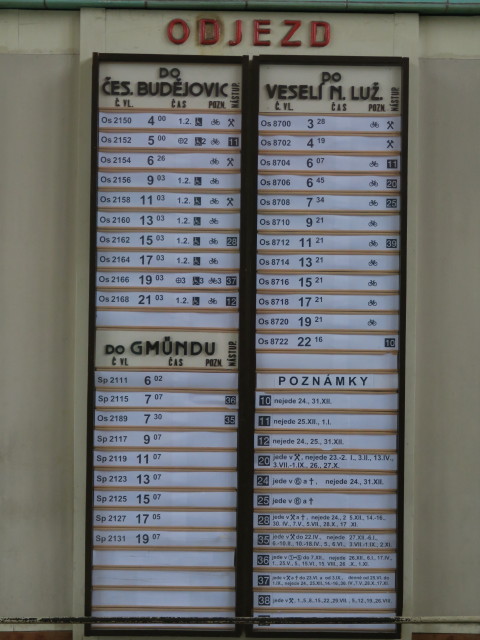 ODJEZD
DO
ČES. BUDĚJOVIC
Č. VL. ČAS POZN. NÁSTUP.
Os 2150 4 00 1.2.
Os 2152 5 00 2 2 11
Os 2154 6 26
Os 2156 9 03 1.2.
Os 2158 11 03 1.2.
Os 2160 13 03 1.2.
Os 2162 15 03 1.2. 28
Os 2164 17 03 1.2.
Os 2166 19 03 3 3 3 37
Os 2168 21 03 1.2. 12
DO GMÜNDU
Č. VL. ČAS POZN. NÁSTUP.
Sp 2111 6 02
Sp 2115 7 07 36
Os 2189 7 30 35
Sp 2117 9 07
Sp 2119 11 07
Sp 2123 13 07
Sp 2125 15 07
Sp 2127 17 05
Sp 2131 19 07
DO
VESELÍ N. LUŽ.
Č. VL. ČAS POZN. NÁSTUP.
Os 8700 3 28
Os 8702 4 19
Os 8704 6 07 11
Os 8706 6 45 20
Os 8708 7 34 25
Os 8710 9 21
Os 8712 11 21 39
Os 8714 13 21
Os 8716 15 21
Os 8718 17 21
Os 8720 19 21
Os 8722 22 16 10
POZNÁMKY
10 nejede 24., 31.XII.
11 nejede 25.XII., 1.I.
12 nejede 24., 25., 31.XII.
20 jede v ⚒, nejede 23.-2. I., 3.II., 13.IV.,
3.VII.-1.IX., 26., 27.X.
24 jede v ⑥ a †, nejede 24., 31.XII.
25 jede v ⑥ a †
28 jede v ⚒ a †, nejede 24.,
35 jede v ⚒ do 22.IV., nejede
36 jede v nejede
37 jede v
38 jede v ⚒,